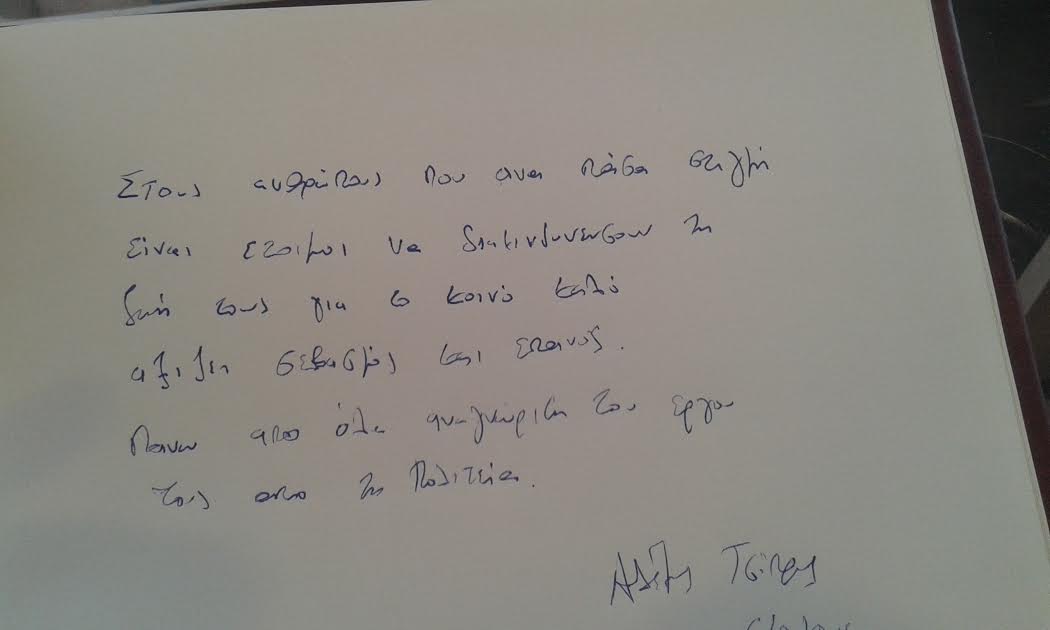 Στους ανθρώπους που ανα πάσα στιγμή
είναι έτοιμοι να διακινδυνευσουν τη
ζωή τους για το κοινό καλό
αξιζει σεβασμός και επαινος.
Πανω απο όλα αναγνώριση του έργου
τους απο τη Πολιτεία.
Αλέξης Τσίπρας